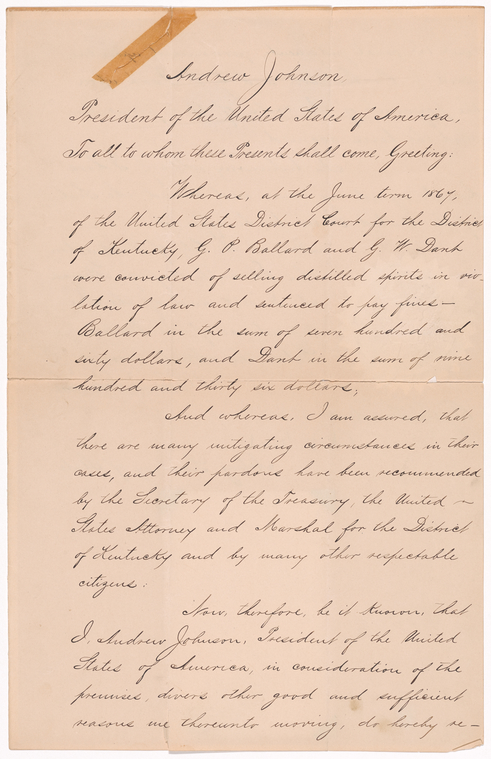 Andrew Johnson,
President of the United States of America,
To all to whom these Presents shall come, Greeting:
Whereas, at the June term 1867,
of the United States District Court for the District
of Kentucky, G. P. Ballard and G. W. Dant
were convicted of selling distilled spirits in vio-
lation of law and sentenced to pay fines—
Ballard in the sum of seven hundred and
sixty dollars, and Dant in the sum of nine
hundred and thirty six dollars;
And whereas, I am assured, that
there are many mitigating circumstances in their
cases, and their pardons have been recommended
by the Secretary of the Treasury, the United –
States Attorney and Marshal for the District
of Kentucky and by many other respectable
citizens:
Now, therefore, be it known, that
I, Andrew Johnson, President of the United
States of America, in consideration of the
premises, divers other good and sufficient
reasons me thereunto moving, do hereby re–